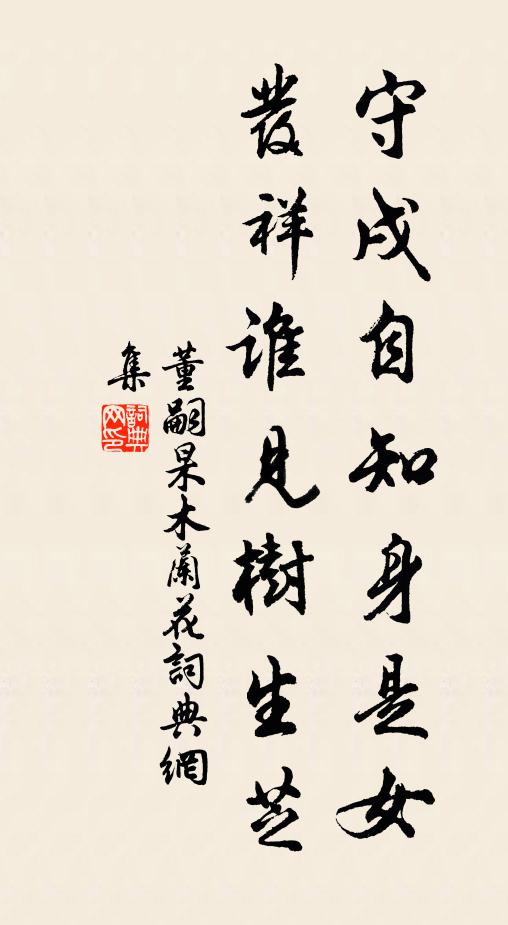 守戍自知身是女
發祥誰見樹生芝
董嗣杲木蘭花詞典網
集
詞典網印